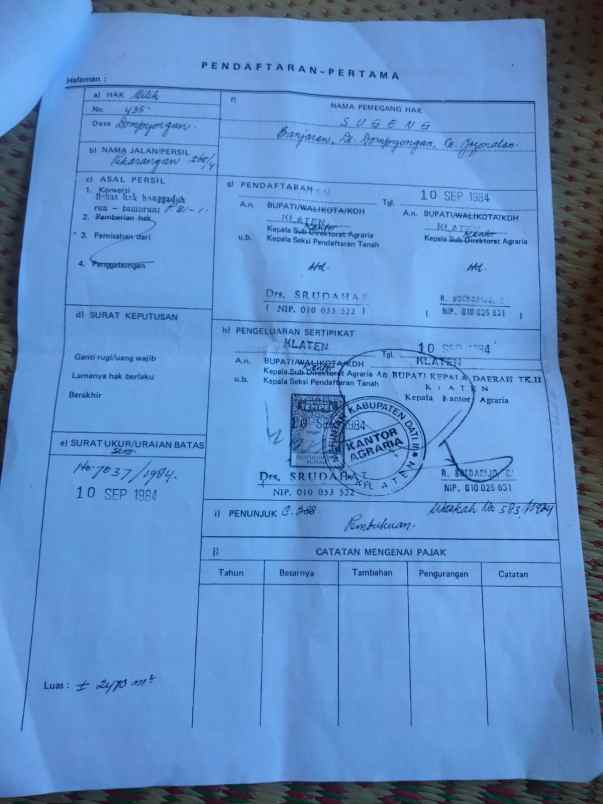 PENDAFTARAN-PERTAMA
Halaman :
a) HAK Milik
No. 435.
Desa Dompyongan.
b) NAMA JALAN/PERSIL
Pekarangan
c) ASAL PERSIL
1. Konversi
Bekas hak
2. Pemberian hak
3. Pemisahan dari
4. Penggabungan
d) SURAT KEPUTUSAN
Ganti rugi/uang wajib
Lamanya hak berlaku
Berakhir
e) SURAT UKUR/URAIAN BATAS
No. 7037/1984.
10 SEP 1984
Luas : ±
f)
NAMA PEMEGANG HAK
SUGENG
Banjaran, Ds. Dompyongan, Ce. Jogonalan.
g) PENDAFTARAN
Tgl. 10 SEP 1984
A.n. BUPATI/WALIKOTA/KDH
KLATEN
Kepala Sub Direktorat Agraria
u.b. Kepala Seksi Pendaftaran Tanah
ttd.
Drs. SRUDAHAT
( NIP. 010 053 522 )
A.n. BUPATI/WALIKOTA/KDH
KLATEN
Kepala Sub Direktorat Agraria
ttd.
( NIP. 010 025 631 )
h) PENGELUARAN SERTIPIKAT
KLATEN
Tgl. 10 SEP 1984
KLATEN
A.n. BUPATI/WALIKOTA/KDH
Kepala Sub Direktorat Agraria
u.b. Kepala Seksi Pendaftaran Tanah
An BUPATI KEPALA DAERAH TK.II
KLATEN
Kepala Kantor Agraria
10 SEP 1984
KABUPATEN DATI II
KANTOR
AGRARIA
KLATEN
Drs. SRUDAHAT
NIP. 010 053 522
NIP. 010 025 631
i) PENUNJUK
Pembukuan.
j) CATATAN MENGENAI PAJAK
Tahun Besarnya Tambahan Pengurangan Catatan